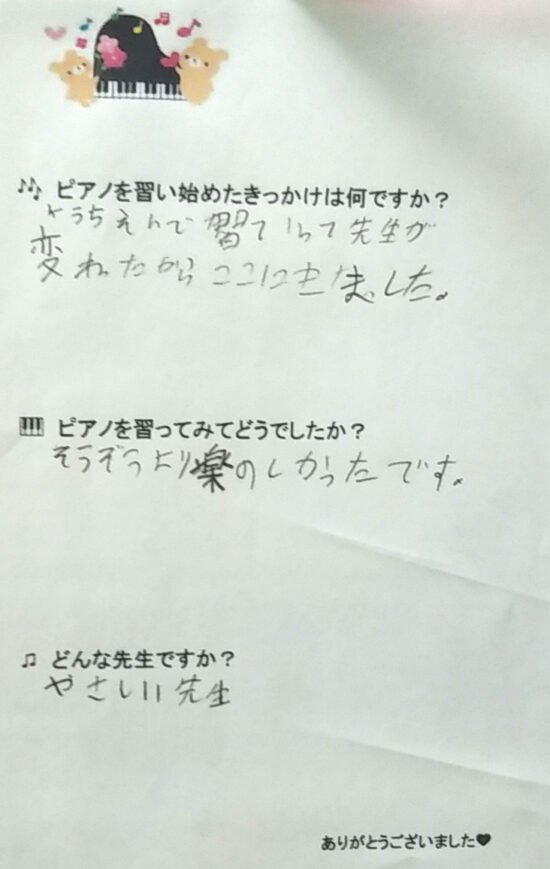 ピアノを習い始めたきっかけは何ですか？
ようちえんで習ていて先生が
変わったからここにきました。
ピアノを習ってみてどうでしたか？
そうぞうより楽のしかったです。
どんな先生ですか？
やさしい先生
ありがとうございました♥